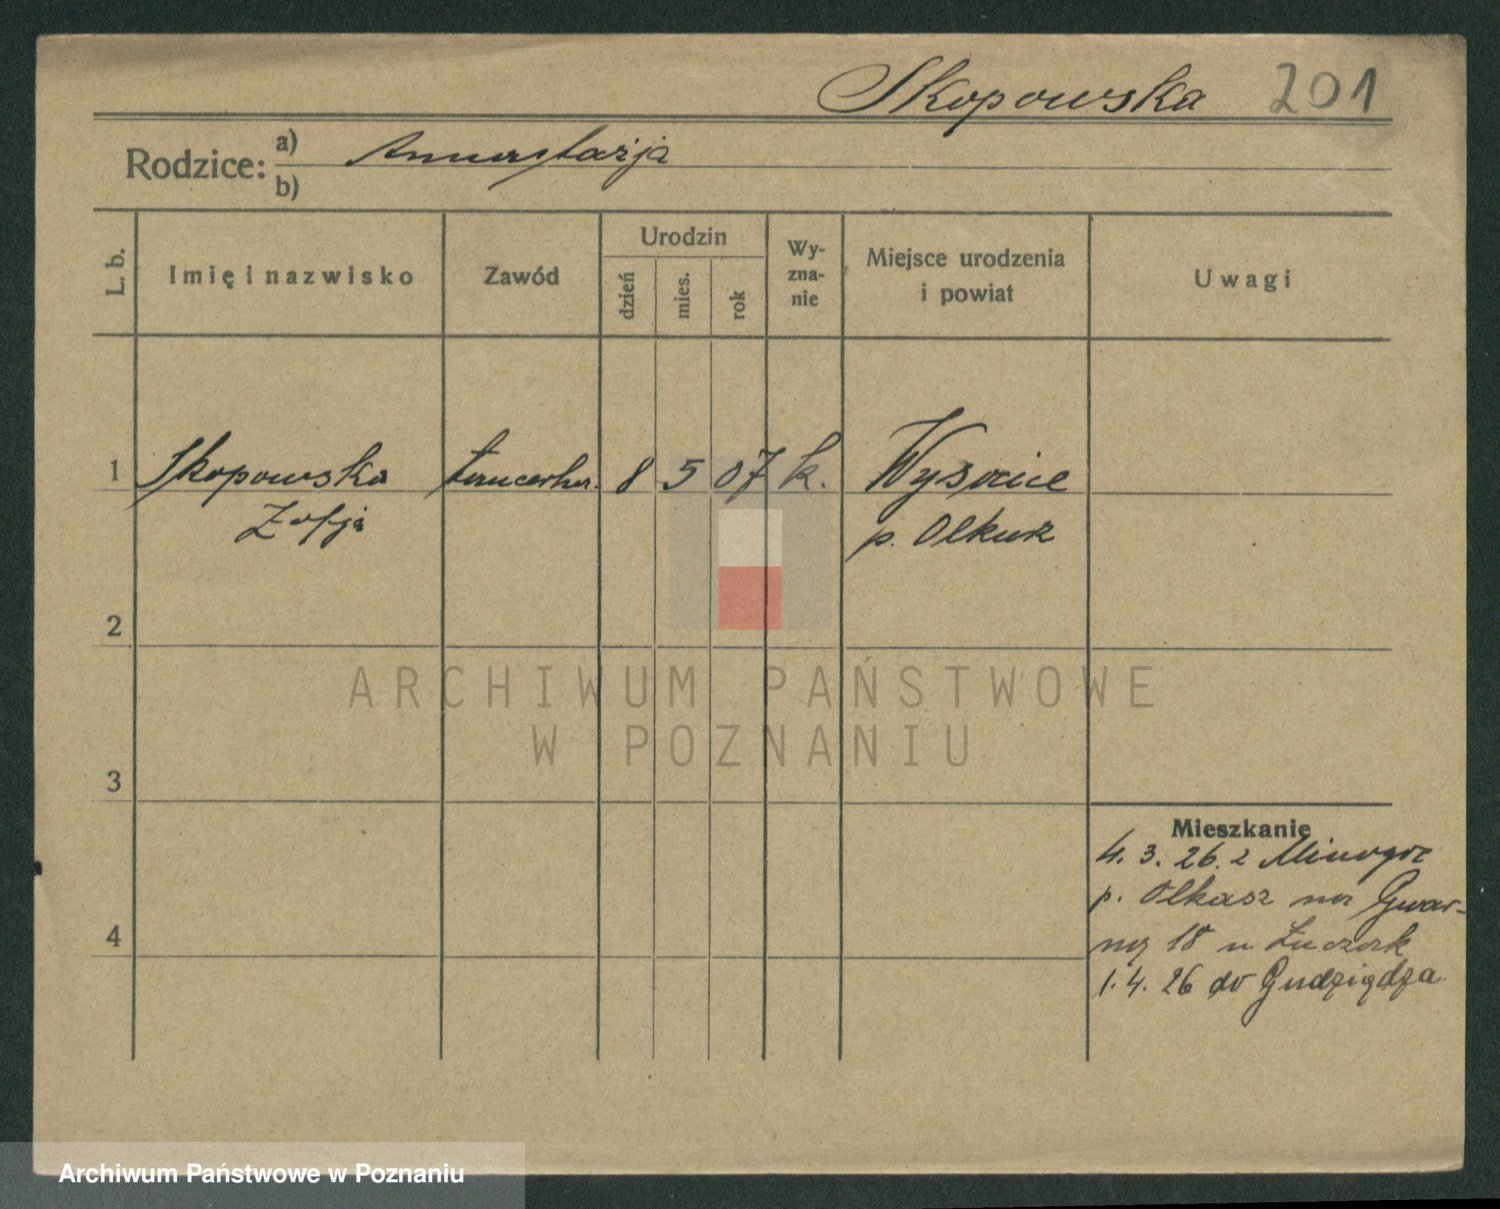 Skopowska 201
Rodzice: a) Anastazja
b)
L. b. Imię i nazwisko Zawód Urodzin dzień mies. rok Wy-zna-nie Miejsce urodzenia i powiat Uwagi
1 Skopowska tancerka. 8 5 07 k. Wysocice
Zofja p. Olkusz
2
ARCHIWUM PAŃSTWOWE
W POZNANIU
3
Mieszkanie
4. 3. 26. z Minogi
p. Olkusz na Gwar-
4
ną 18 u Łuczak
1. 4. 26 do Grudziądza
Archiwum Państwowe w Poznaniu